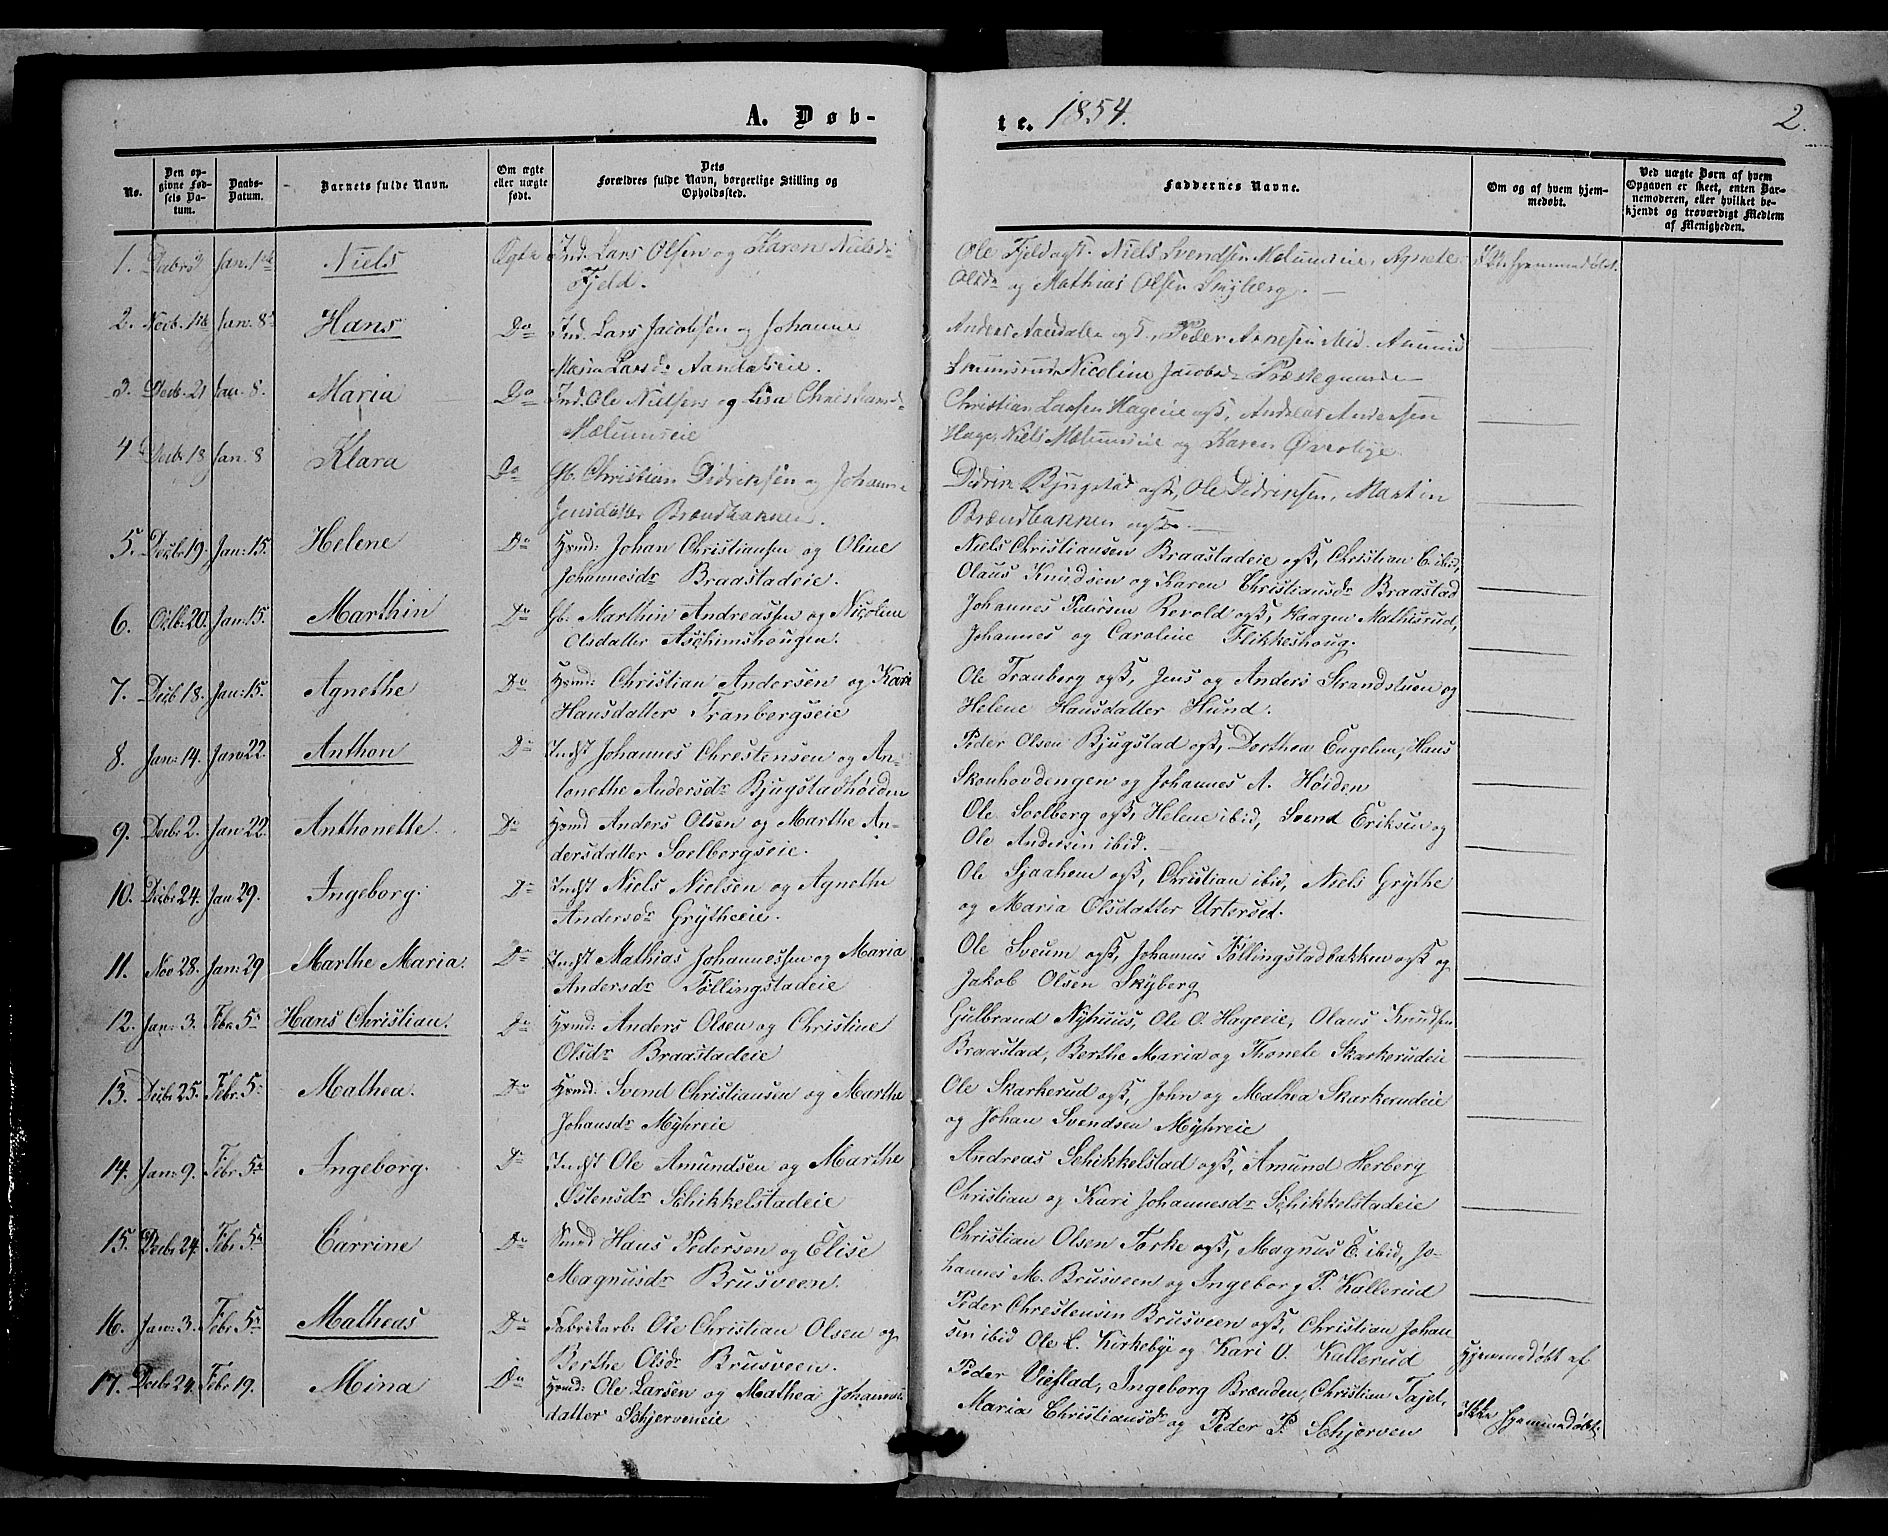 A. Døb-
te. 1854. 2.
No. Den opgivne Fødsels Datum. Daabs-Datum. Barnets fulde Navn. Om ægte eller uægte født. Dets Forældres fulde Navn, borgerlige Stilling og Opholdssted. Faddernes Navne. Om og af hvem hjemmedøbt. Ved uægte Børn af hvem Opgaven er skeet, enten Barnemoderen, eller hvilket bekjendt og troværdigt Medlem af Menigheden.
1. Jan. 1ste Niels Ægte Ind. Lars Olsen og Karen Nielsd: Ole Fjeld ogsß. Niels Svendsen Mælumseie, Agnete Ikke hjemmedøbt.
Fjeld. Olsdr og Mathias Olsen Skyberg.
2. Jan: 8de Hans Do Ind. Lars Jacobsen og Johanne Anders Aandalen ogsß, Peder Arnesen
Maria Larsdr Aandalseie. Nicoline Jacobsdr Præstegaarde
3. Decb. 21 Jan. 8. Maria Do Ind. Ole Nielsen og Lisa Christiansd. Christian Larsen Hageeie ogsß, Andreas Andersen
Mælumseie Hage, Niels Mælumseie og Karen Øverbye.
4. Decb: 18. Jan. 8 Klara Do Gb. Christian Didriksen og Johanne Didrik Bjugstad ogsß, Ole Didriksen, Martin
Jensdatter Brændbakken. Brændbakken ogsß.
5. Decbr 19. Jan: 15. Helene Do Hmd: Johan Christiansen og Oline Niels Christiansen Braastadeie ogsß, Christian C. ibid,
Johannesdr Braastadeie. Olaus Knudsen og Karen Christiansdr Braastad
6. Octb. 20. Jan: 15. Marthin Do Gb. Marthin Andreassen og Nicoline Johannes Pedersen Revold ogsß, Haagen Mathisrud,
Olsdatter Aschimshougen. Johannes og Caroline Flikkeshoug.
7. Decb 18. Jan: 15. Agnethe Do Hmd: Christian Andersen og Kari Ole Tranberg ogsß, Jens og Anders Strandstuen og
Hansdatter Tranbergseie Helene Hansdatter Hund.
8. Jan: 14. Jan 22. Anthon Do Indst Johannes Chrestensen og An- Peder Olsen Bjugstad ogsß, Dorthea Engelien, Hans
tonethe Andersdr Bjugstadhøiden Skonhovdengen og Johannes A. Høiden
9. Decbr 2. Jan 22. Anthonette. Do Hmd Anders Olsen og Marthe An- Ole Soelberg ogsß, Helene ibid, Svend Eriksen og
dersdatter Soelbergseie. Ole Andersen ibid.
10. Decbr 24. Jan 29. Ingeborg. Do Indst Niels Nielsen og Agnethe Ole Sjaahem ogsß, Christian ibid, Niels Grythe
Andersdr Grytheeie. og Maria Olsdatter Urterset.
11. Nov 28. Jan: 29 Marthe Maria. Do Indst Mathias Johannessen og Maria Ole Sveum ogsß, JohannesFøllingstadbakken ogsß og
Andersdr Føllingstadeie Jakob Olsen Skyberg
12. Jan: 3. Feb 5te Hans Christian. Do Hmd: Anders Olsen og Christine Gulbrand Nyhuus, Ole O. Hageeie, Olaus Knudsen
Olsdr Braastadeie Braastad, Berthe Maria og Thonete Skarkerudeie
13. Decbr 25. Febr. 5te Mathea. Do Hmd: Svend Christiansen og Marthe Ole Skarkerud ogsß, John og Mathea Skarkerudeie
Johansdr Myhreie og Johan Svendsen Myhreie
14. Jan: 9. Febr 5te Ingeborg. Do Indst Ole Amundsen og Marthe Andreas Schikkelstad ogsß, Amund Herberg
Østensdr Schikkelstadeie Christian og Kari Johannesdr Schikkelstadeie
15. Decbr 24. Febr 5te Carrine Do Smed Hans Pedersen og Elise Christian Olsen Torke ogsß, Magnus E. ibid, Jo-
Magnusdr Brusveen. hannes M. Brusveen og Ingeborg P. Kallerud
16. Jan: 3. Febr 5te Matheas Do Fabrikarb. Ole Christian Olsen og Peder Chrestensen Brusveen ogsß, Christian Johan
Berthe Olsdr Brusveen. sen ibid Ole L. Kirkebye og Kari O. Kallerud Hjemmedøbt af
17. Decbr 24. Febr 19. Mina Do Hmd: Ole Larsen og Mathea Johannes Peder Viestad, Ingeborg Brænden, Christian Tajet,
datter Schjerveneie Maria Christiansdr og Peder P. Schjerven Ikke hjemmedøbt.